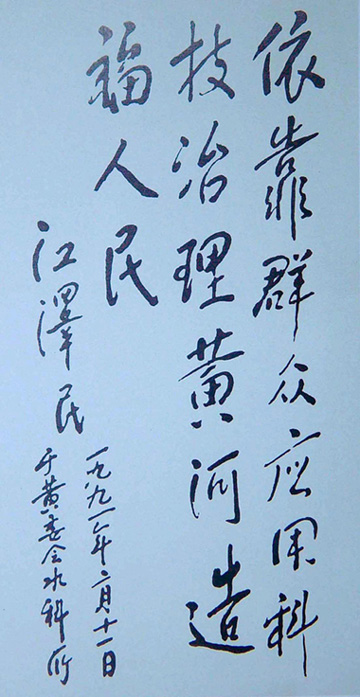 依靠群众应用科
技治理黄河造
福人民
江泽民
一九九一年二月十一日
于黄委会水科所